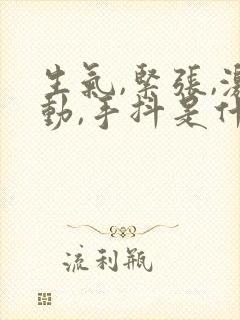 生氣,緊張,激
動,手抖是什
流利瓶